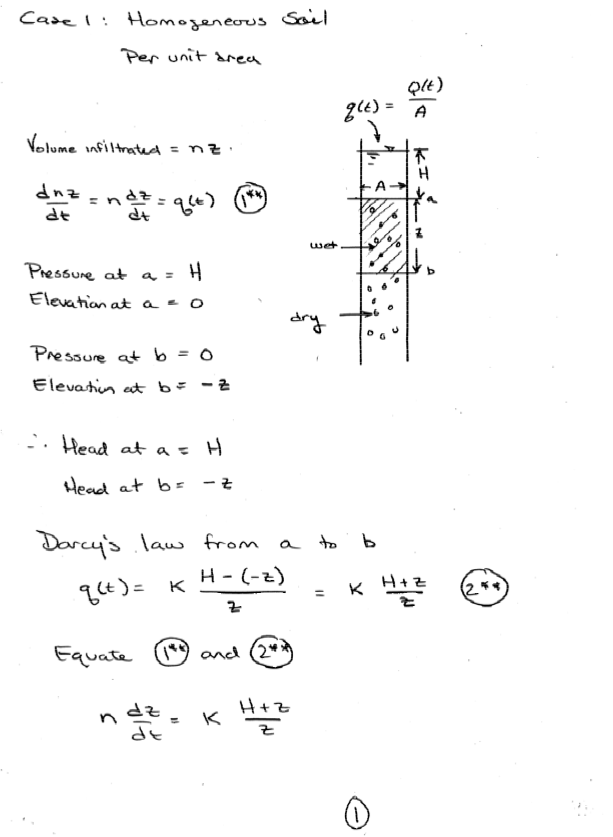 Case 1: Homogeneous Soil
Per unit area
q(t) = Q(t)/A
Volume infiltrated = nz.
dnz/dt = n dz/dt = q(t) (1**)
H
A
a
z
wet
b
Pressure at a = H
Elevation at a = 0
dry
Pressure at b = 0
Elevation at b = -z
∴ Head at a = H
Head at b = -z
Darcy's law from a to b
q(t) = K (H-(-z))/z = K (H+z)/z (2**)
Equate (1**) and (2**)
n dz/dt = K (H+z)/z
1